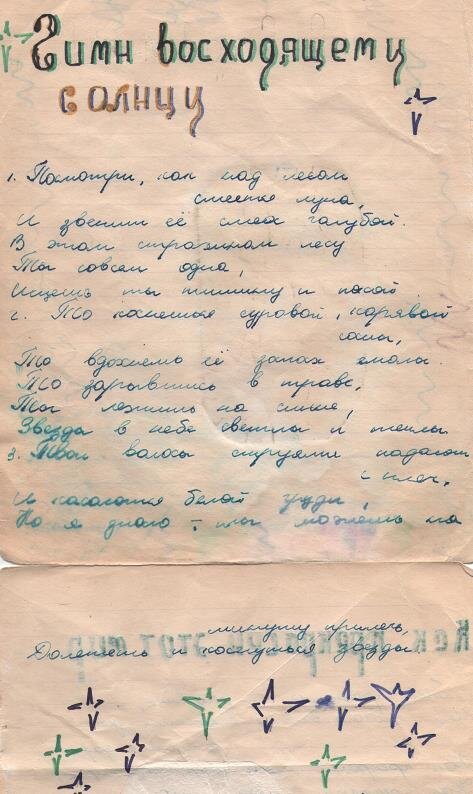 Гимн восходящему
солнцу
1. Посмотри, как над лесом
смеется луна,
И звенит её смех голубой.
В этом страшном лесу
Ты совсем одна,
Ищешь ты тишину и покой.
2. То коснешься суровой, корявой
сосны,
То вдохнешь её запах смолы.
То зарывшись в траве,
Ты лежишь на спине,
Звезды в небе светлы и теплы
3. Твои волосы струями падают
с плеч,
И касаются белой груди,
Но я знаю - ты можешь на
минутку прилечь,
Долететь и коснуться звезды
Как прекрасен этот мир